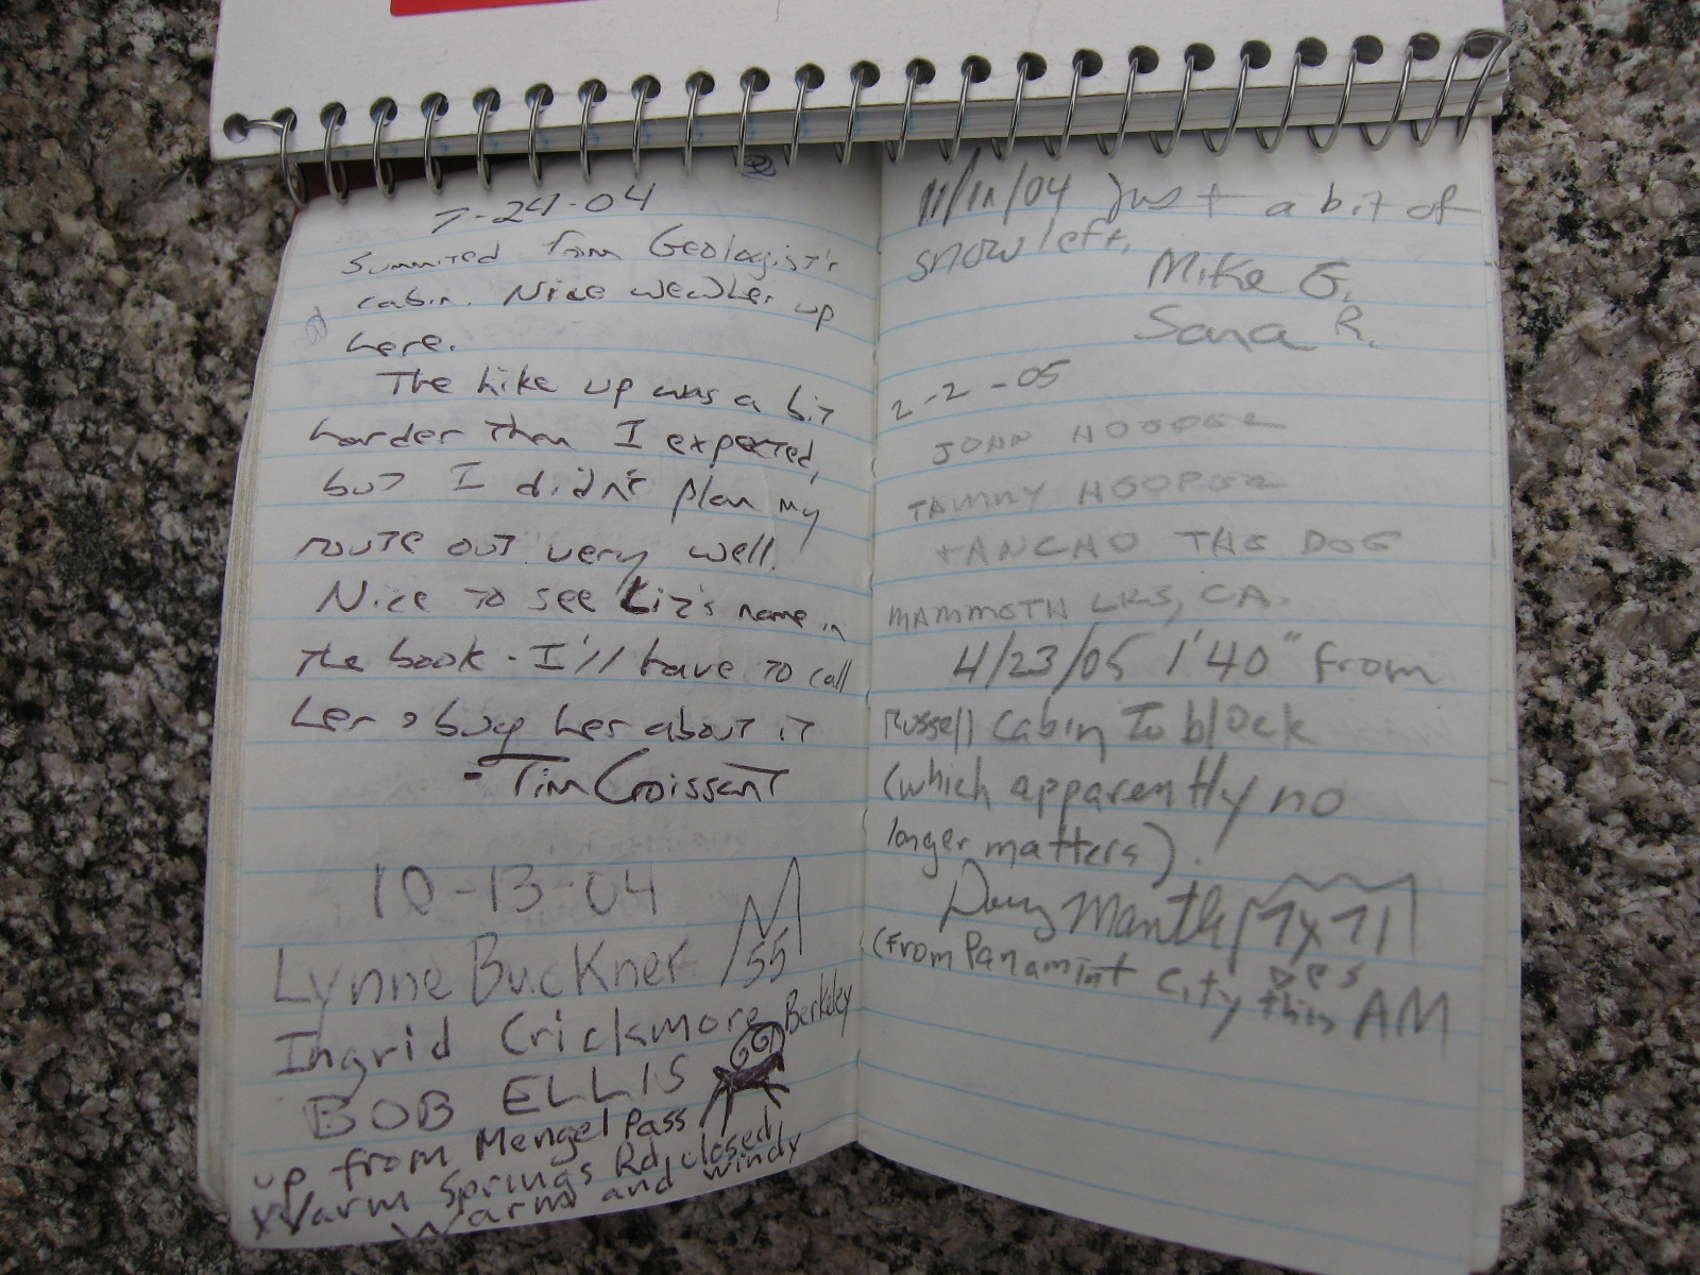 7-24-04
Summited from Geologist's
cabin. Nice weather up
here.
The hike up was a bit
harder than I expected,
but I didn't plan my
route out very well.
Nice to see Liz's name in
the book. I'll have to call
her & bug her about it
- Tim Croissant
10-13-04
Lynne Buckner 55
Ingrid Crickmore Berkeley
BOB ELLIS
up from Mengel Pass
Warm Springs Rd closed
Warm and windy
11/11/04 Just a bit of
snow left.
Mike G.
Sara R.
2-2-05
JOHN HOOPER
TAMMY HOOPER
+ ANCHO THE DOG
MAMMOTH LKS, CA.
4/23/05 1'40" from
Russell cabin to block
(which apparently no
longer matters).
Doug Mantle
(From Panamint City this AM